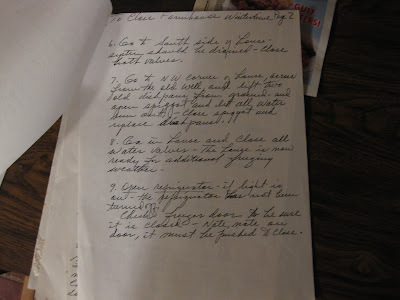 To Close Farmhouse Wintertime Pg. 2
6. Go to South side of House-
system should be drained - Close
both valves.
7. Go to N.W. corner of House, across
from the old well, and lift two
old dishpans from ground - and
open spiggot and let all water
run out. - Close spiggot and
replace dishpans.
8. Go in House and Close all
water valves - The House is now
ready for additional freezing
weather.
9. Open refrigerator - if light is
out - the refrigerator has not been
turned
Check freezer door to be sure
it is closed - Note, note on
door, it must be pushed to close.